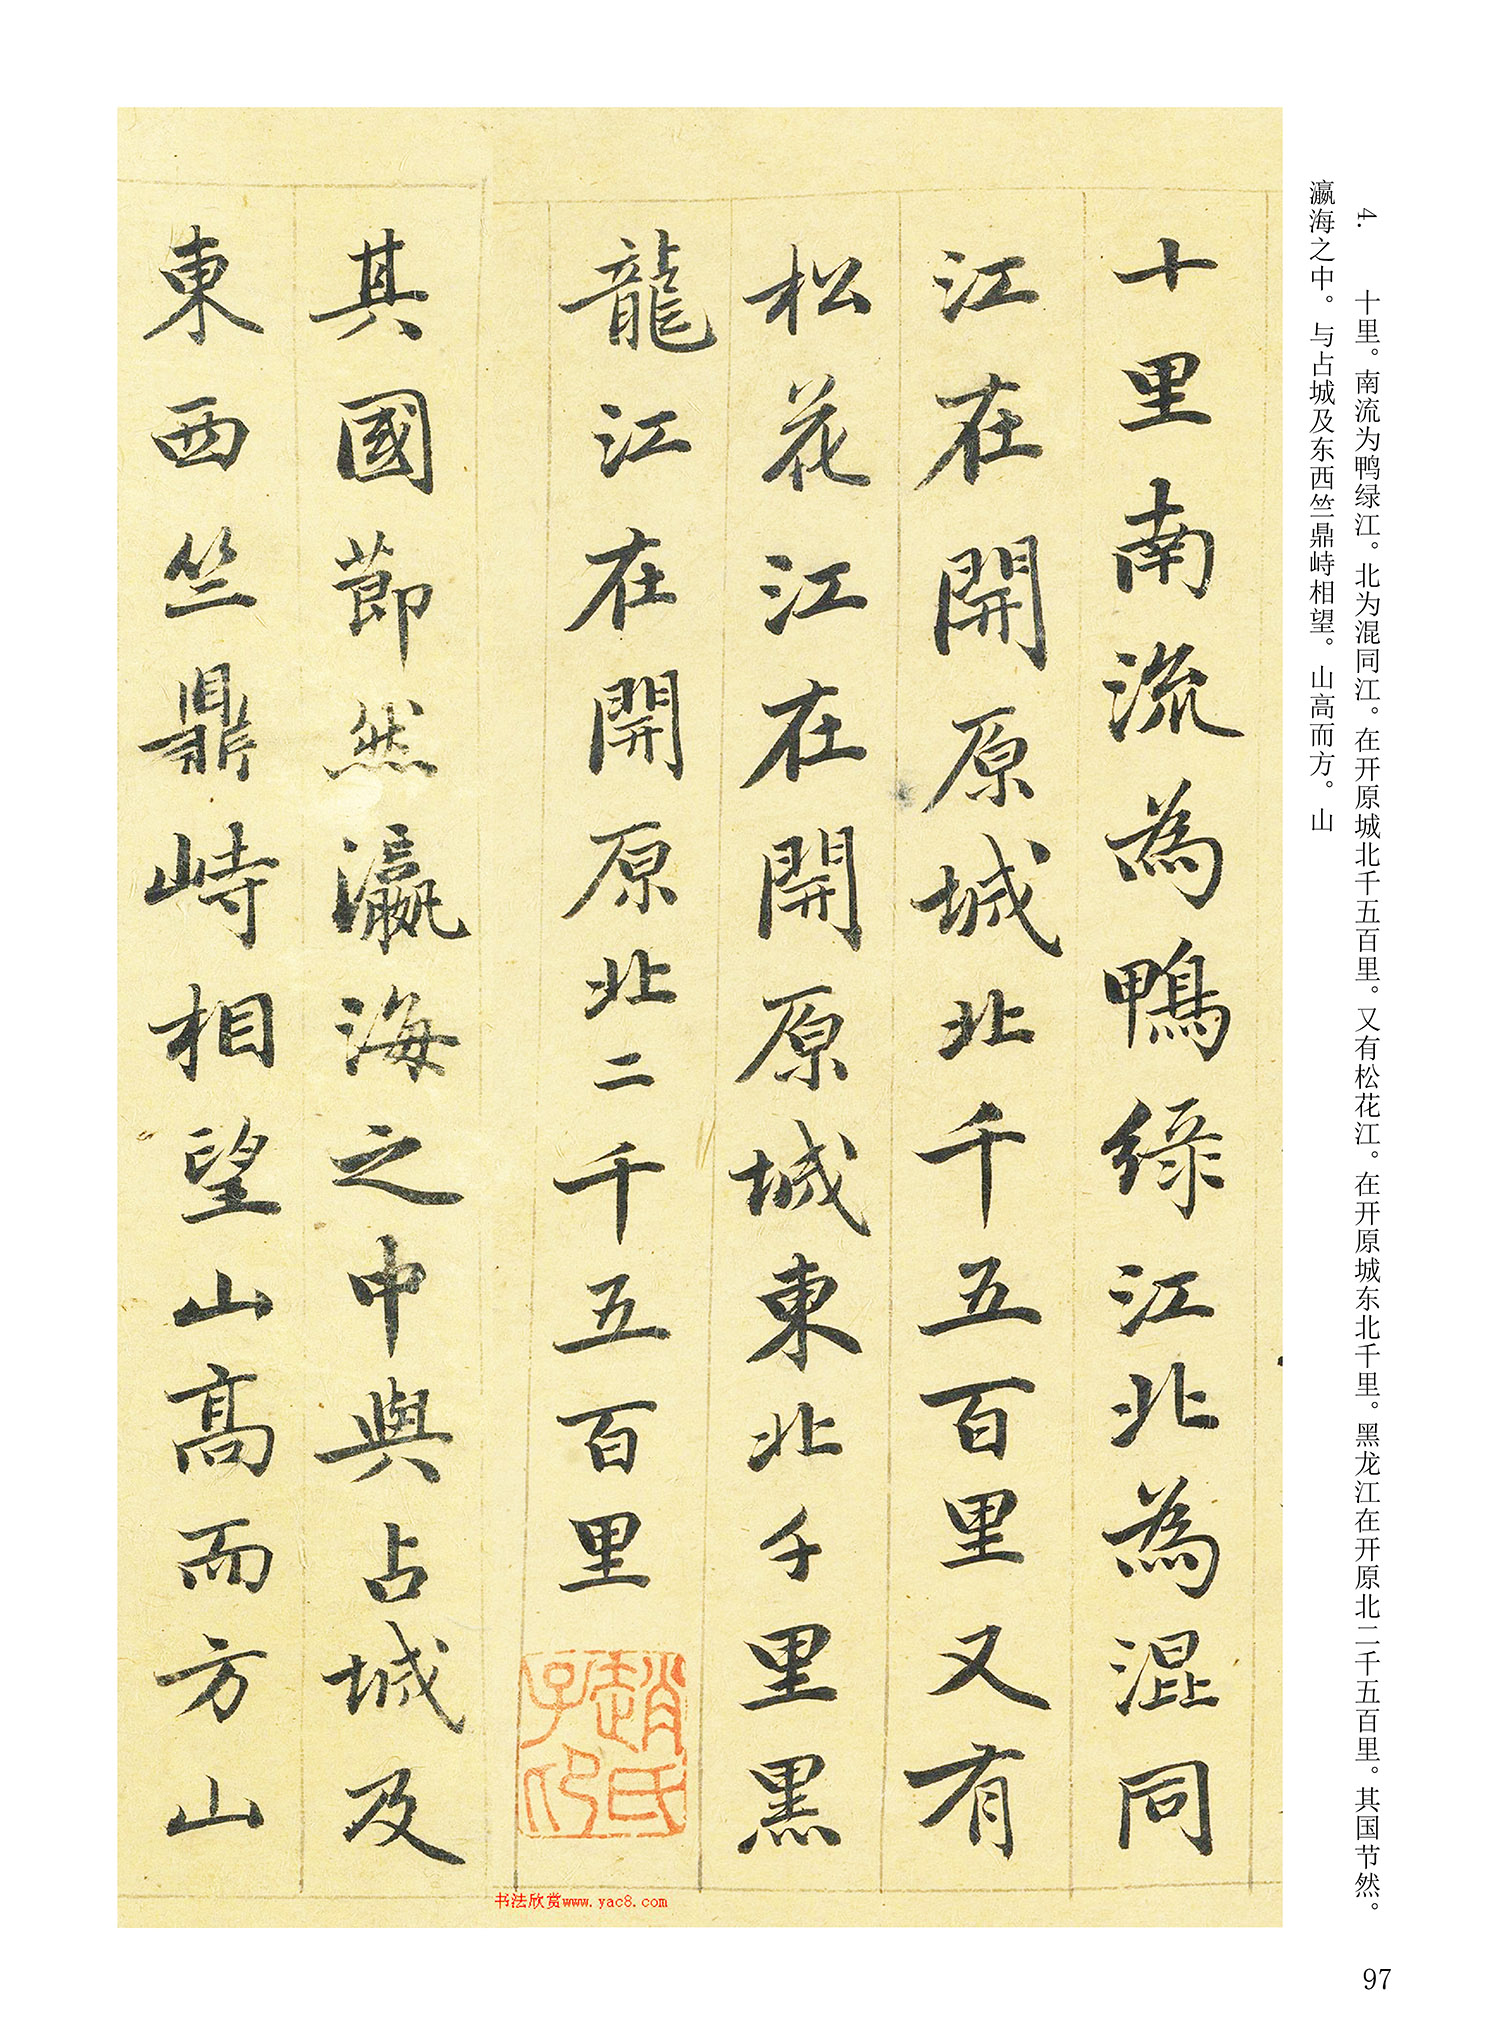 4. 十里。南流为鸭绿江。北为混同江。在开原城北千五百里。又有松花江。在开原城东北千里。黑龙江在开原北二千五百里。其国节然。
瀛海之中。与占城及东西竺鼎峙相望。山高而方。山
十里南流為鴨綠江北為混同
江在開原城北千五百里又有
松花江在開原城東北千里黑
龍江在開原北二千五百里
趙氏子印
其國節然瀛海之中與占城及
東西竺鼎峙相望山高而方山
书法欣赏www.yac8.com
97